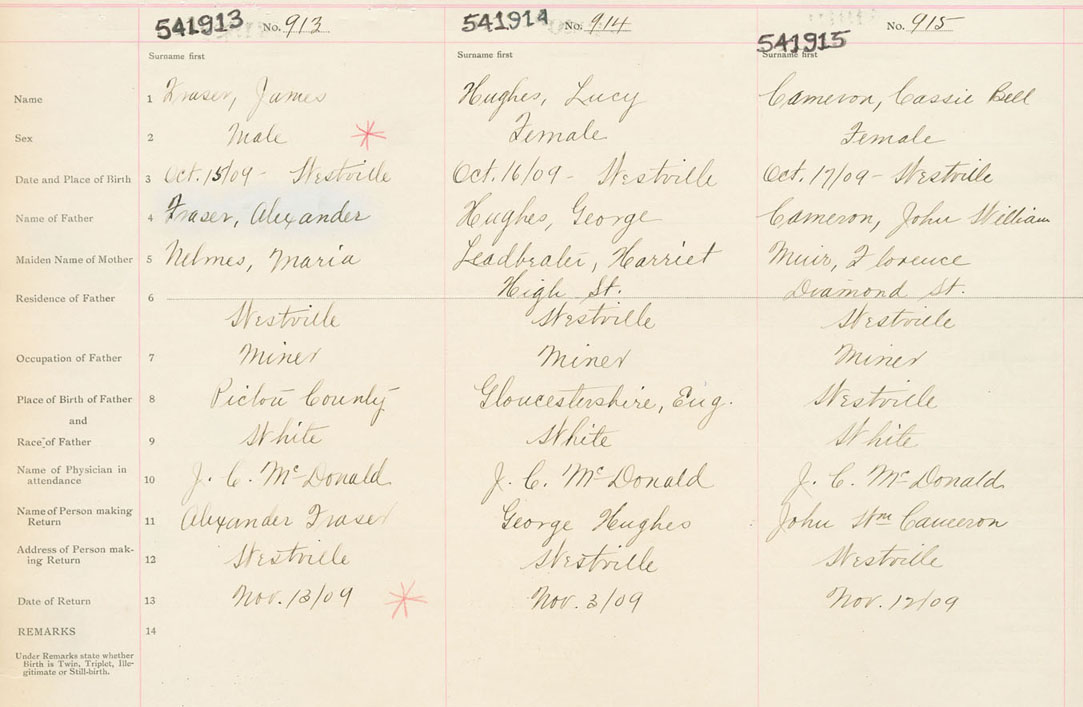 541913 No. 913 541914 No. 914 541915 No. 915
Surname first Surname first Surname first
Name 1 Fraser, James Hughes, Lucy Cameron, Cassie Bell
Sex 2 Male Female Female
Date and Place of Birth 3 Oct. 15/09 - Westville Oct. 16/09 - Westville Oct. 17/09 - Westville
Name of Father 4 Fraser, Alexander Hughes, George Cameron, John William
Maiden Name of Mother 5 Nelmes, Maria Leadbeater, Harriet Muir, Florence
High St. Diamond St.
Residence of Father 6
Westville Westville Westville
Occupation of Father 7 Miner Miner Miner
Place of Birth of Father 8 Pictou County Gloucestershire, Eng. Westville
and
Race of Father 9 White White White
Name of Physician in
attendance 10 J. C. McDonald J. C. McDonald J. C. McDonald
Name of Person making
Return 11 Alexander Fraser George Hughes John Wm Cameron
Address of Person mak-
ing Return 12 Westville Westville Westville
Date of Return 13 Nov. 13/09 Nov. 3/09 Nov. 12/09
REMARKS 14
Under Remarks state whether
Birth is Twin, Triplet, Ille-
gitimate or Still-birth.